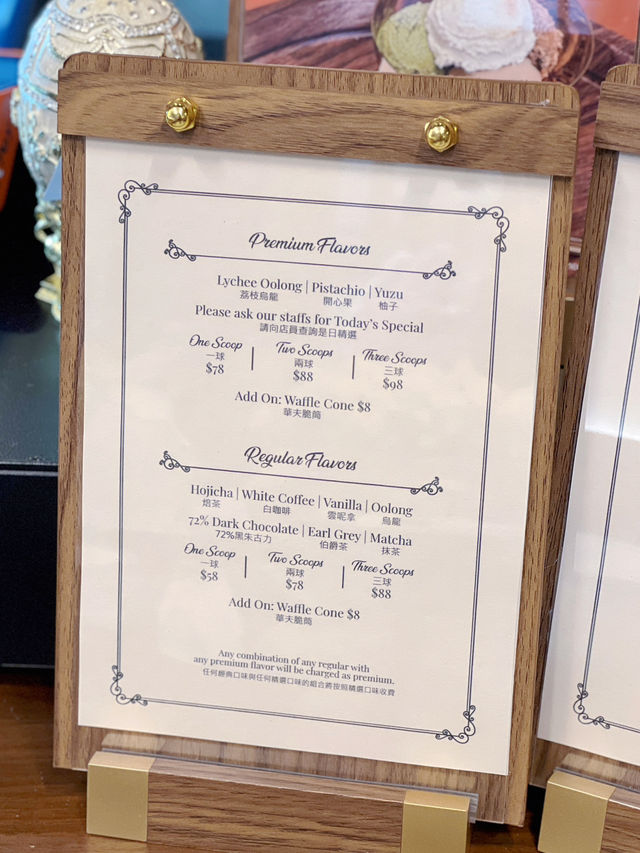 Premium Flavors
Lychee Oolong | Pistachio | Yuzu
荔枝烏龍 開心果 柚子
Please ask our staffs for Today's Special
請向店員查詢是日精選
One Scoop Two Scoops Three Scoops
一球 兩球 三球
$78 $88 $98
Add On: Waffle Cone $8
華夫脆筒
Regular Flavors
Hojicha | White Coffee | Vanilla | Oolong
焙茶 白咖啡 雲呢拿 烏龍
72% Dark Chocolate | Earl Grey | Matcha
72%黑朱古力 伯爵茶 抹茶
One Scoop Two Scoops Three Scoops
一球 兩球 三球
$58 $78 $88
Add On: Waffle Cone $8
華夫脆筒
Any combination of any regular with
any premium flavor will be charged as premium.
任何經典口味與任何精選口味的組合將按照精選口味收費